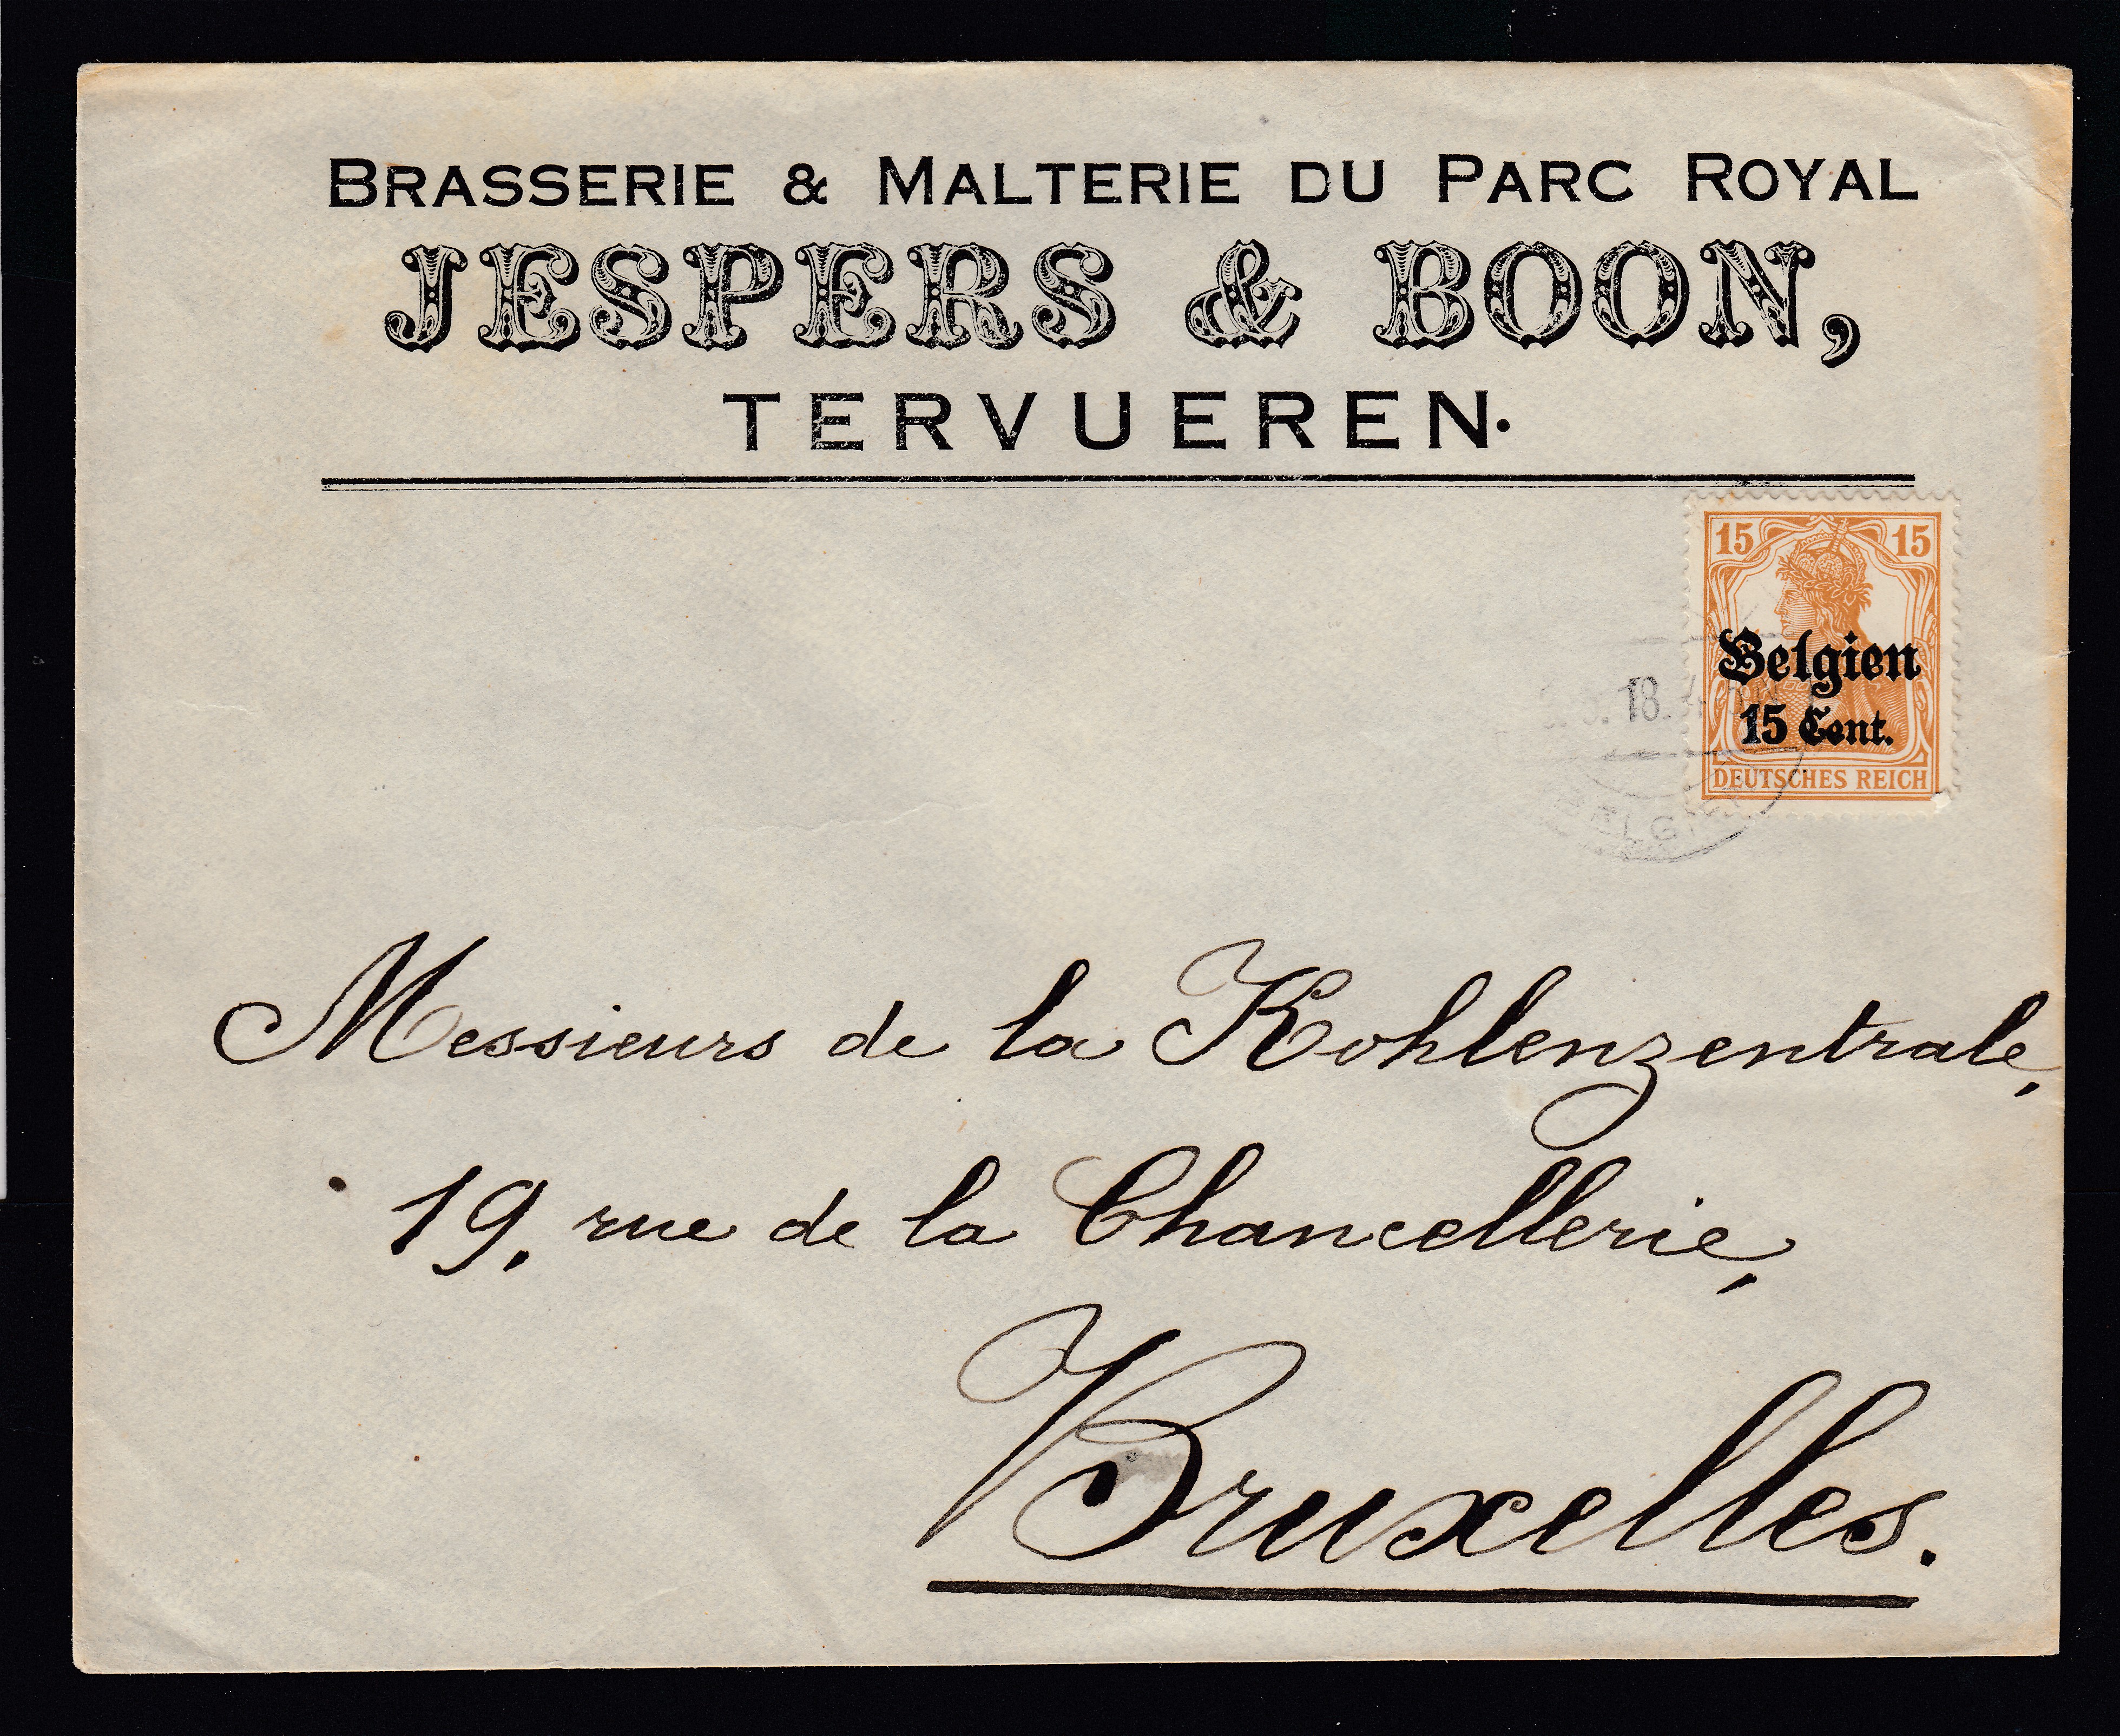 BRASSERIE & MALTERIE DU PARC ROYAL
JESPERS & BOON,
TERVUEREN.
15 15
Belgien
18.
15 Cent.
DEUTSCHES REICH
Messieurs de la Kohlenzentrale,
19, rue de la Chancellerie,
Bruxelles.